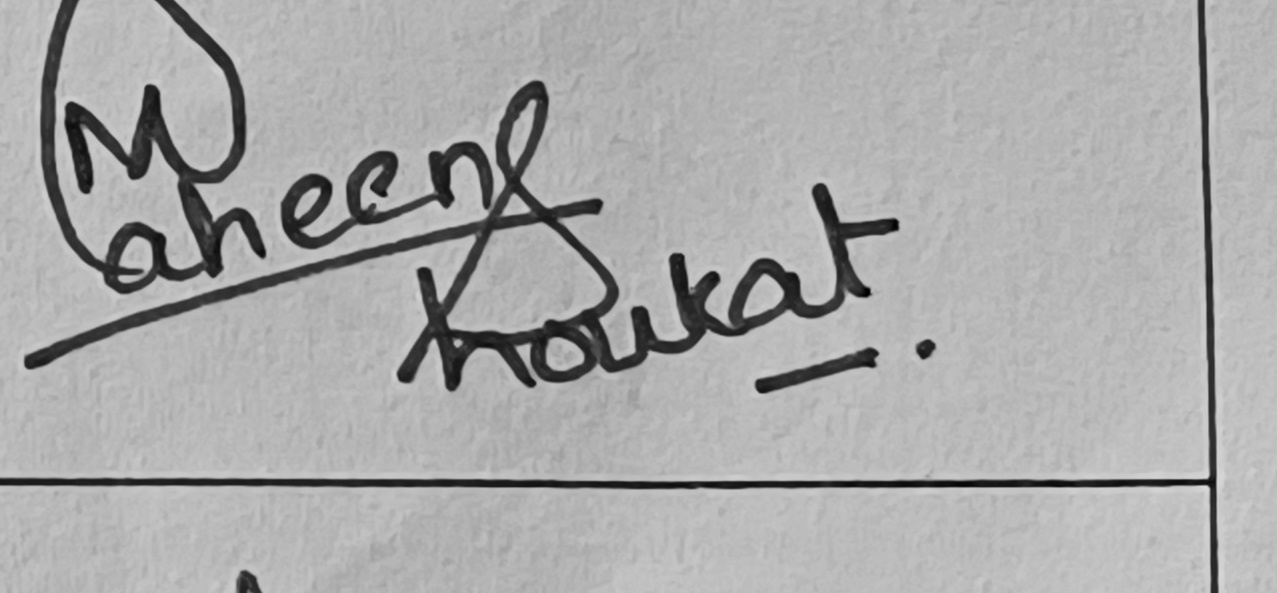 Maheen
Shoukat.